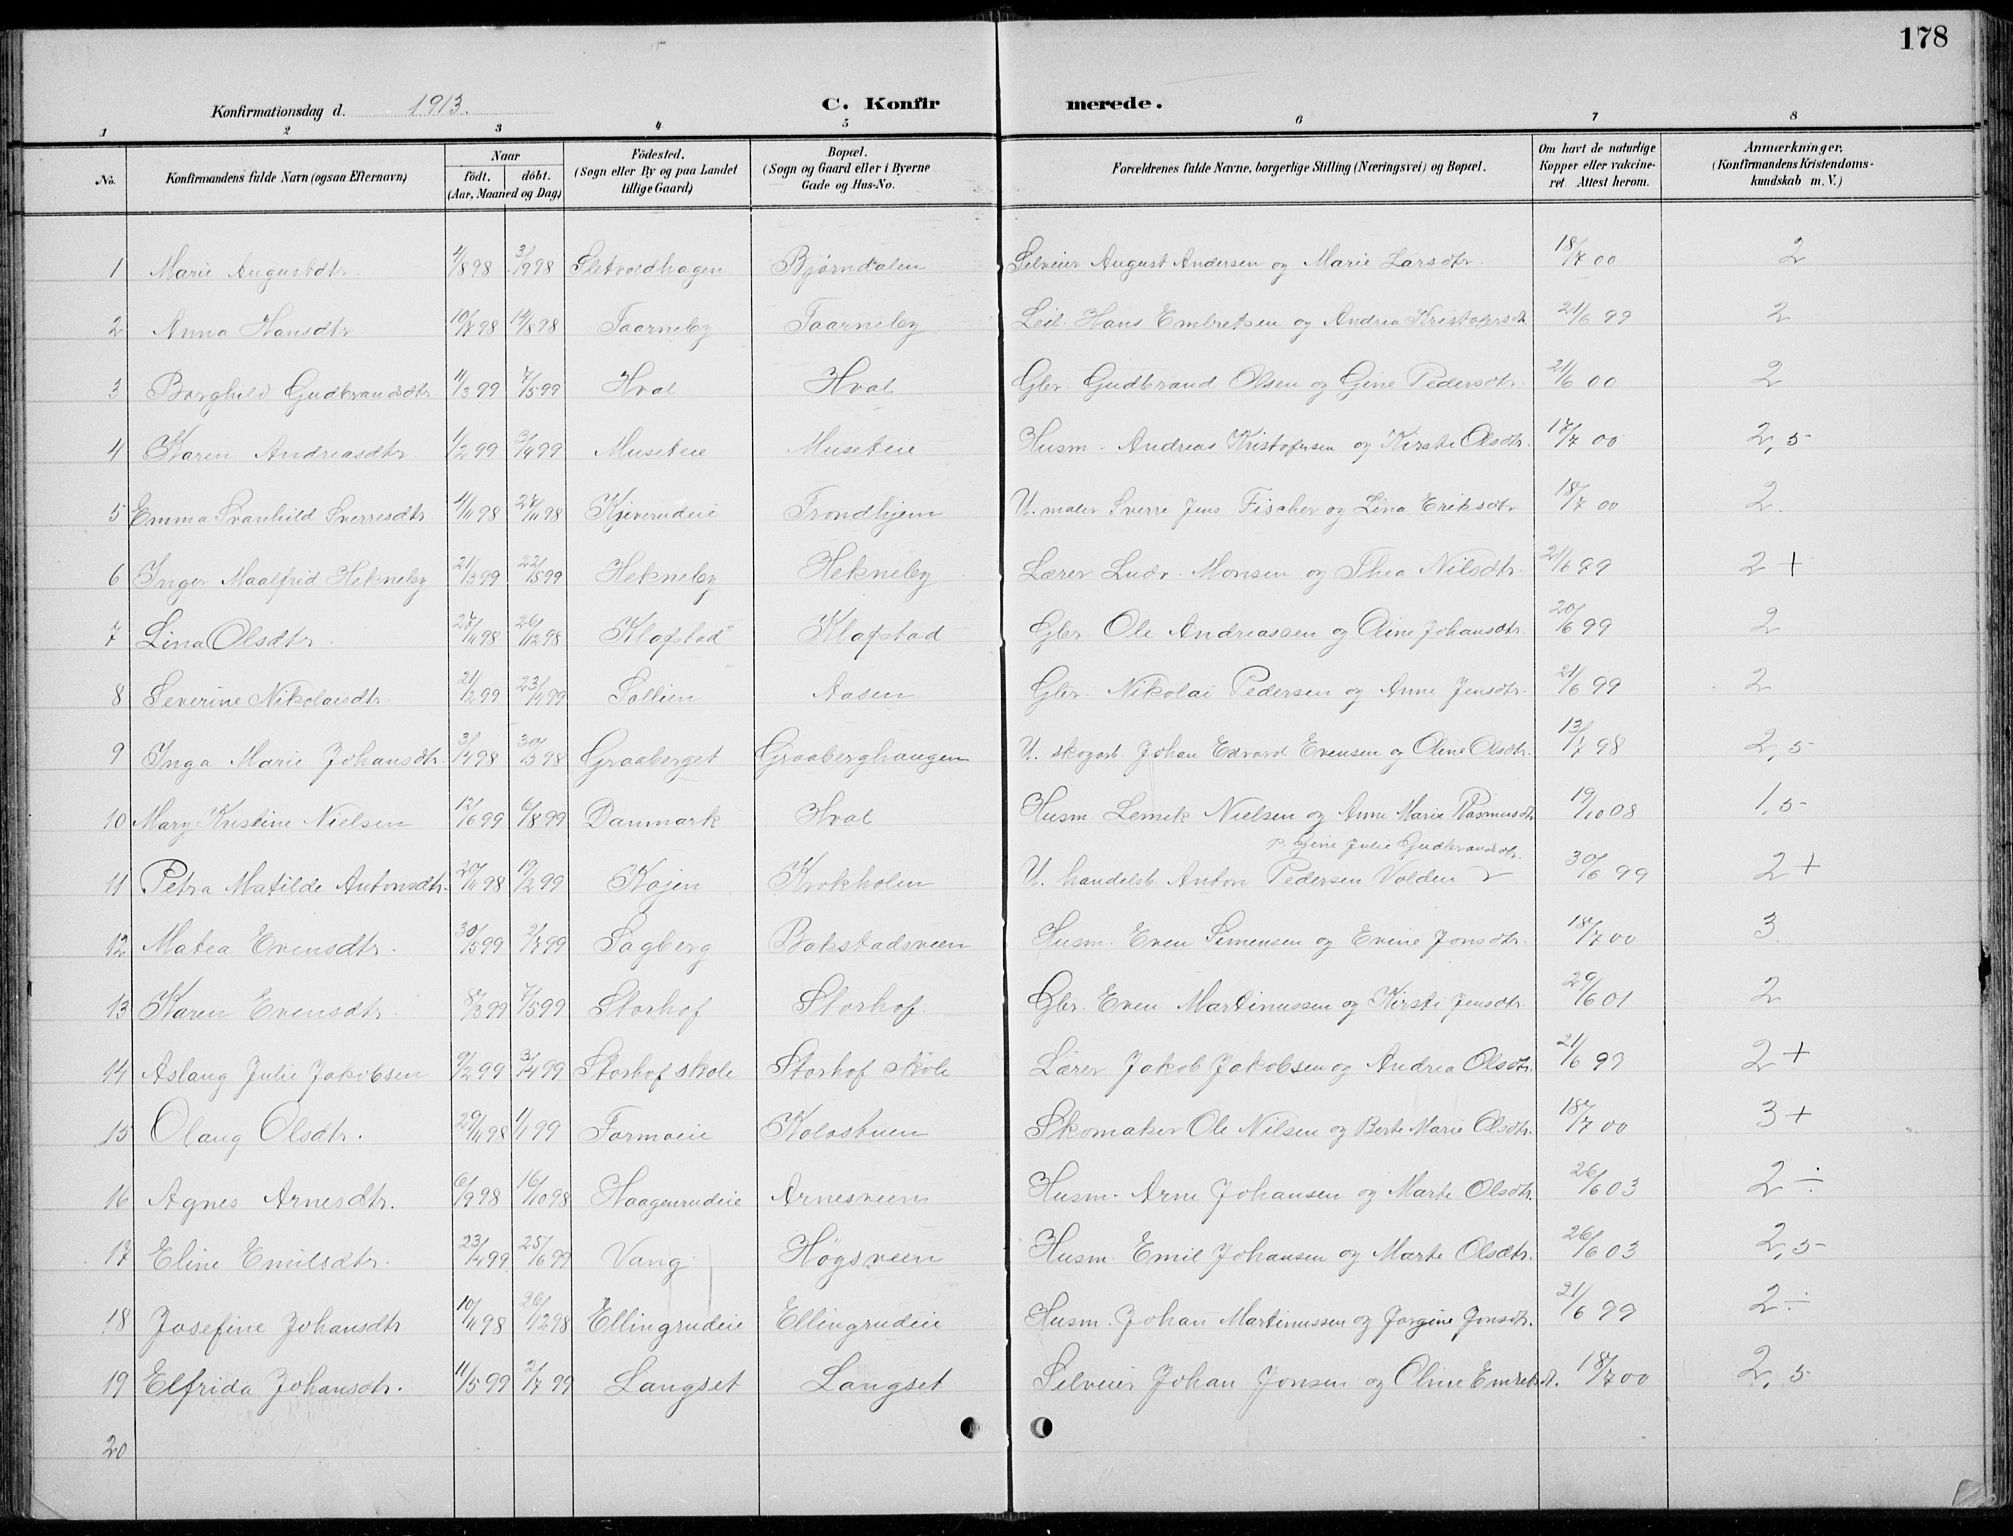 178
Konfirmationsdag d. 1913. C. Konfirmerede.
1 2 3 4 5 6 7 8
No. Konfirmandens fulde Navn (ogsaa Efternavn) Naar födt. döbt. (Aar, Maaned og Dag) Födested. (Sogn eller By og paa Landet tillige Gaard) Bopæl. (Sogn og Gaard eller i Byerne Gade og Hus-No. Forældrenes fulde Navne, borgerlige Stilling (Næringsvei) og Bopæl. Om havt de naturlige Kopper eller vakcineret. Attest herom. Anmærkninger. (Konfirmandens Kristendomskundskab m. V.)
1 Marie Augustdtr. 4/8 98 3/9 98 Sletvoldhagen Bjørndalen Selveier August Andersen og Marie Larsdtr. 18/7 00 2
2 Anna Hansdtr 10/7 98 14/8 98 Taarneby Taarneby Leil. Hans Embretsen og Andrea Kristofersdt 21/6 99 2
3 Borghild Gudbrandsdtr 11/3 99 7/5 99 Hval Hval Gbr. Gudbrand Olsen og Gine Pedersdtr. 21/6 00 2
4 Karen Andreasdtr. 1/2 99 3/4 99 Museteie Museteie Husm. Andreas Kristofersen og Kirsti Olsdtr. 17/7 00 2,5
5 Emma Svanhild Sverresdtr 4/11 98 27/11 98 Kjeverudeie Trondhjem U. maler Sverre Jens Fischer og Lina Eriksdtr 18/7 00 2.
6 Inger Maalfrid Hekneby 21/3 99 22/5 99 Hekneby Hekneby Lærer Ludv. Monsen og Thea Nilsdtr. 21/6 99 2 +
7 Lina Olsdtr. 27/11 98 26/12 98 Klofstad Klofstad Gbr. Ole Andreassen og Oline Johansdtr. 20/6 99 2
8 Severine Nikolaisdtr. 21/2 99 23/4 99 Sollien Aasen Gbr. Nikolai Pedersen og Anne Jensdtr. 21/6 99 2
9 Inga Marie Johansdtr. 3/4 98 30/5 98 Graaberget Graaberghaugen U. skogarb. Johan Edvard Evensen og Oline Olsdtr. 13/7 98 2,5
10 Mary Kristine Nielsen 12/6 99 6/8 99 Danmark Hval Husm Lemek Nielsen og Anne Marie Rasmusdtr 19/10 08 1,5
p. Gine Julie Gudbrandsdtr.
11 Petra Matilde Antonsdtr. 20/11 98 19/2 99 Kojen Krokholen U. handelsb. Anton Pedersen Volden 30/6 99 2 +
12 Matea Evensdtr. 30/5 99 2/7 99 Sagberg Bakstadsveen Husm. Even Simensen og Evine Jonsdtr. 18/7 00 3
13 Karen Evensdtr. 8/3 99 7/5 99 Storhof Storhof. Gbr. Even Martinussen og Kirsti Jensdtr. 29/6 01 2
14 Aslaug Julie Jakobsen 9/2 99 3/4 99 Storhof skole Storhof skole Lærer Jakob Jakobsen og Andrea Olsdtr. 21/6 99 2 +
15 Olaug Olsdtr. 29/11 98 1/1 99 Tormoeie Kolostuen Skomaker Ole Nilsen og Berte Marie Olsdtr. 18/7 00 3 +
16 Agnes Arnesdtr. 6/9 98 16/10 98 Haagenrudeie Arnesveen Husm. Arne Johansen og Marte Olsdtr. 26/6 03 2 ÷
17 Eline Emilsdtr. 23/4 99 25/6 99 Vang Høgsveen Husm. Emil Johansen og Marte Olsdtr. 26/6 03 2,5
18 Josefine Johansdtr 10/11 98 26/12 98 Ellingrudeie Ellingrudeie Husm. Johan Martinussen og Jorgine Jonsdtr. 21/6 99 2 ÷
19 Elfrida Johansdtr. 11/5 99 2/7 99 Langset Langset Selveier Johan Jonsen og Oline Emretsdt. 18/7 00 2,5
20